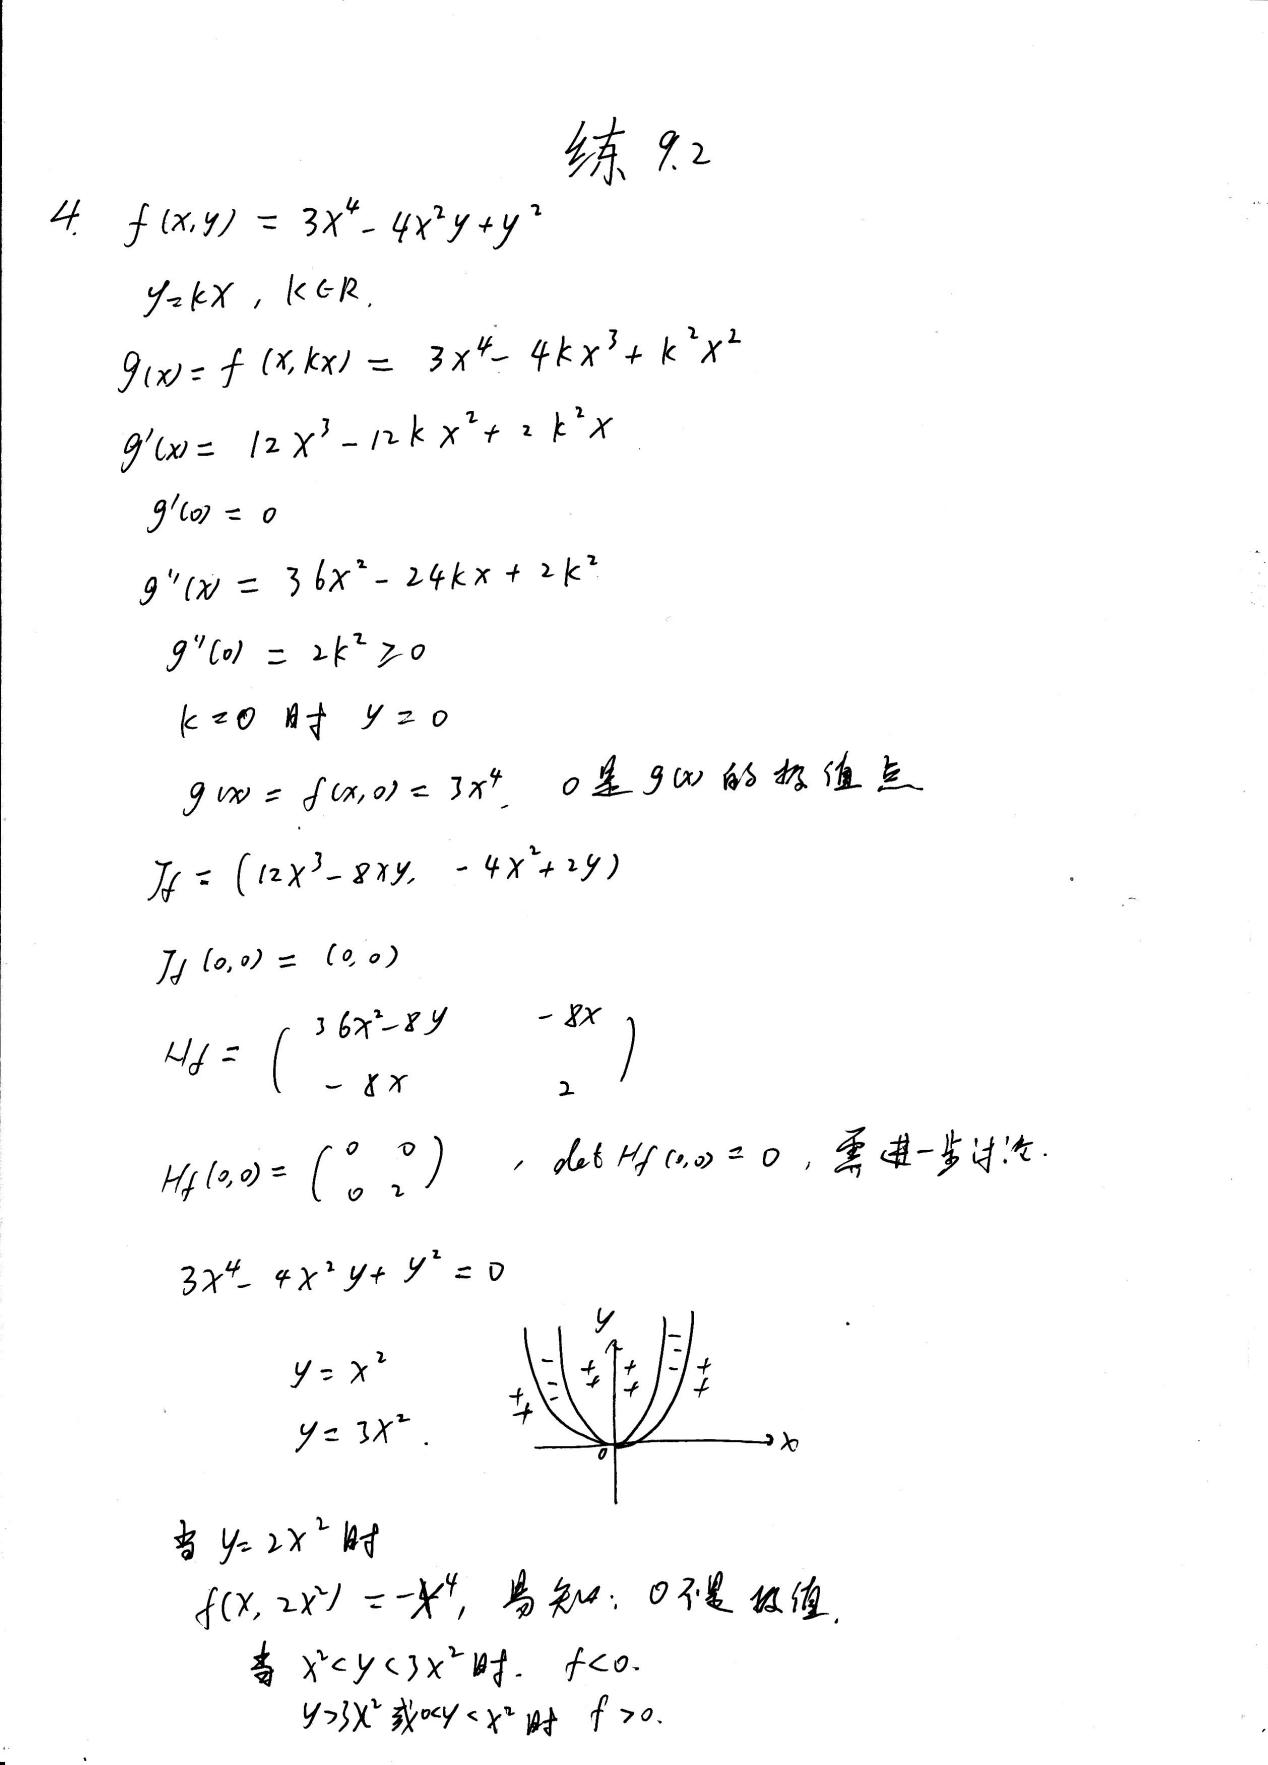 练 9.2
4. f(x,y) = 3x⁴ - 4x²y + y²
y=kx , k∈R.
g(x) = f(x,kx) = 3x⁴ - 4kx³ + k²x²
g'(x) = 12x³ - 12kx² + 2k²x
g'(0) = 0
g''(x) = 36x² - 24kx + 2k²
g''(0) = 2k² ≥ 0
k=0 时 y=0
g(x) = f(x,0) = 3x⁴. 0是g(x)的极值点
Jf = (12x³ - 8xy, -4x² + 2y)
Jf(0,0) = (0,0)
Hf = ( 36x²-8y -8x
-8x 2 )
Hf(0,0) = ( 0 0
0 2 ) , det Hf(0,0) = 0 , 需进一步讨论.
3x⁴ - 4x²y + y² = 0
y = x²
y = 3x².
y
- - - + + + + - - -
+ + + +
0 x
当 y=2x² 时
f(x, 2x²) = -x⁴, 易知: 0不是极值.
当 x²<y<3x² 时. f<0.
y>3x² 或 0<y<x² 时 f>0.